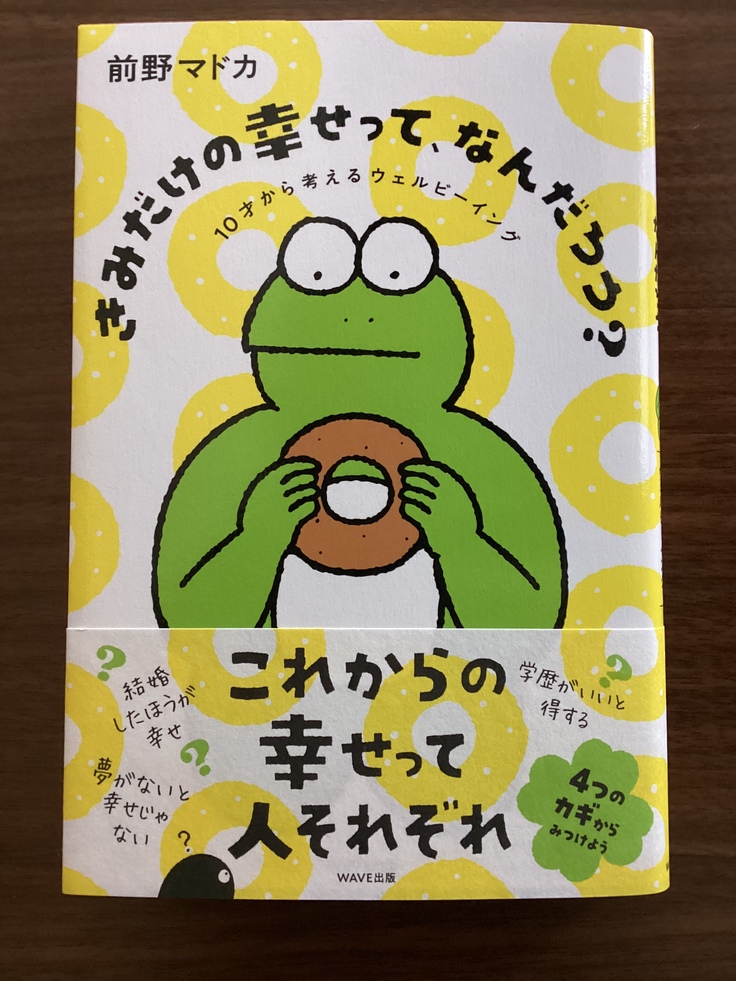 前野マドカ
きみだけの幸せって、なんだろう?
10才から考えるウェルビーイング
?
結婚
したほうが
幸せ
?
夢がないと
幸せじゃ
ない
?
これからの
幸せって
人それぞれ
学歴がいいと
得する
?
4つの
カギから
みつけよう
WAVE出版